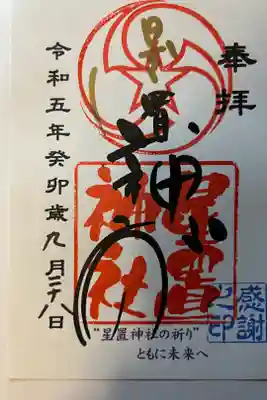 奉拝
星置神社
星置
神社
令和五年癸卯歳九月二十八日
感謝
之印
"星置神社の祈り"
ともに未来へ